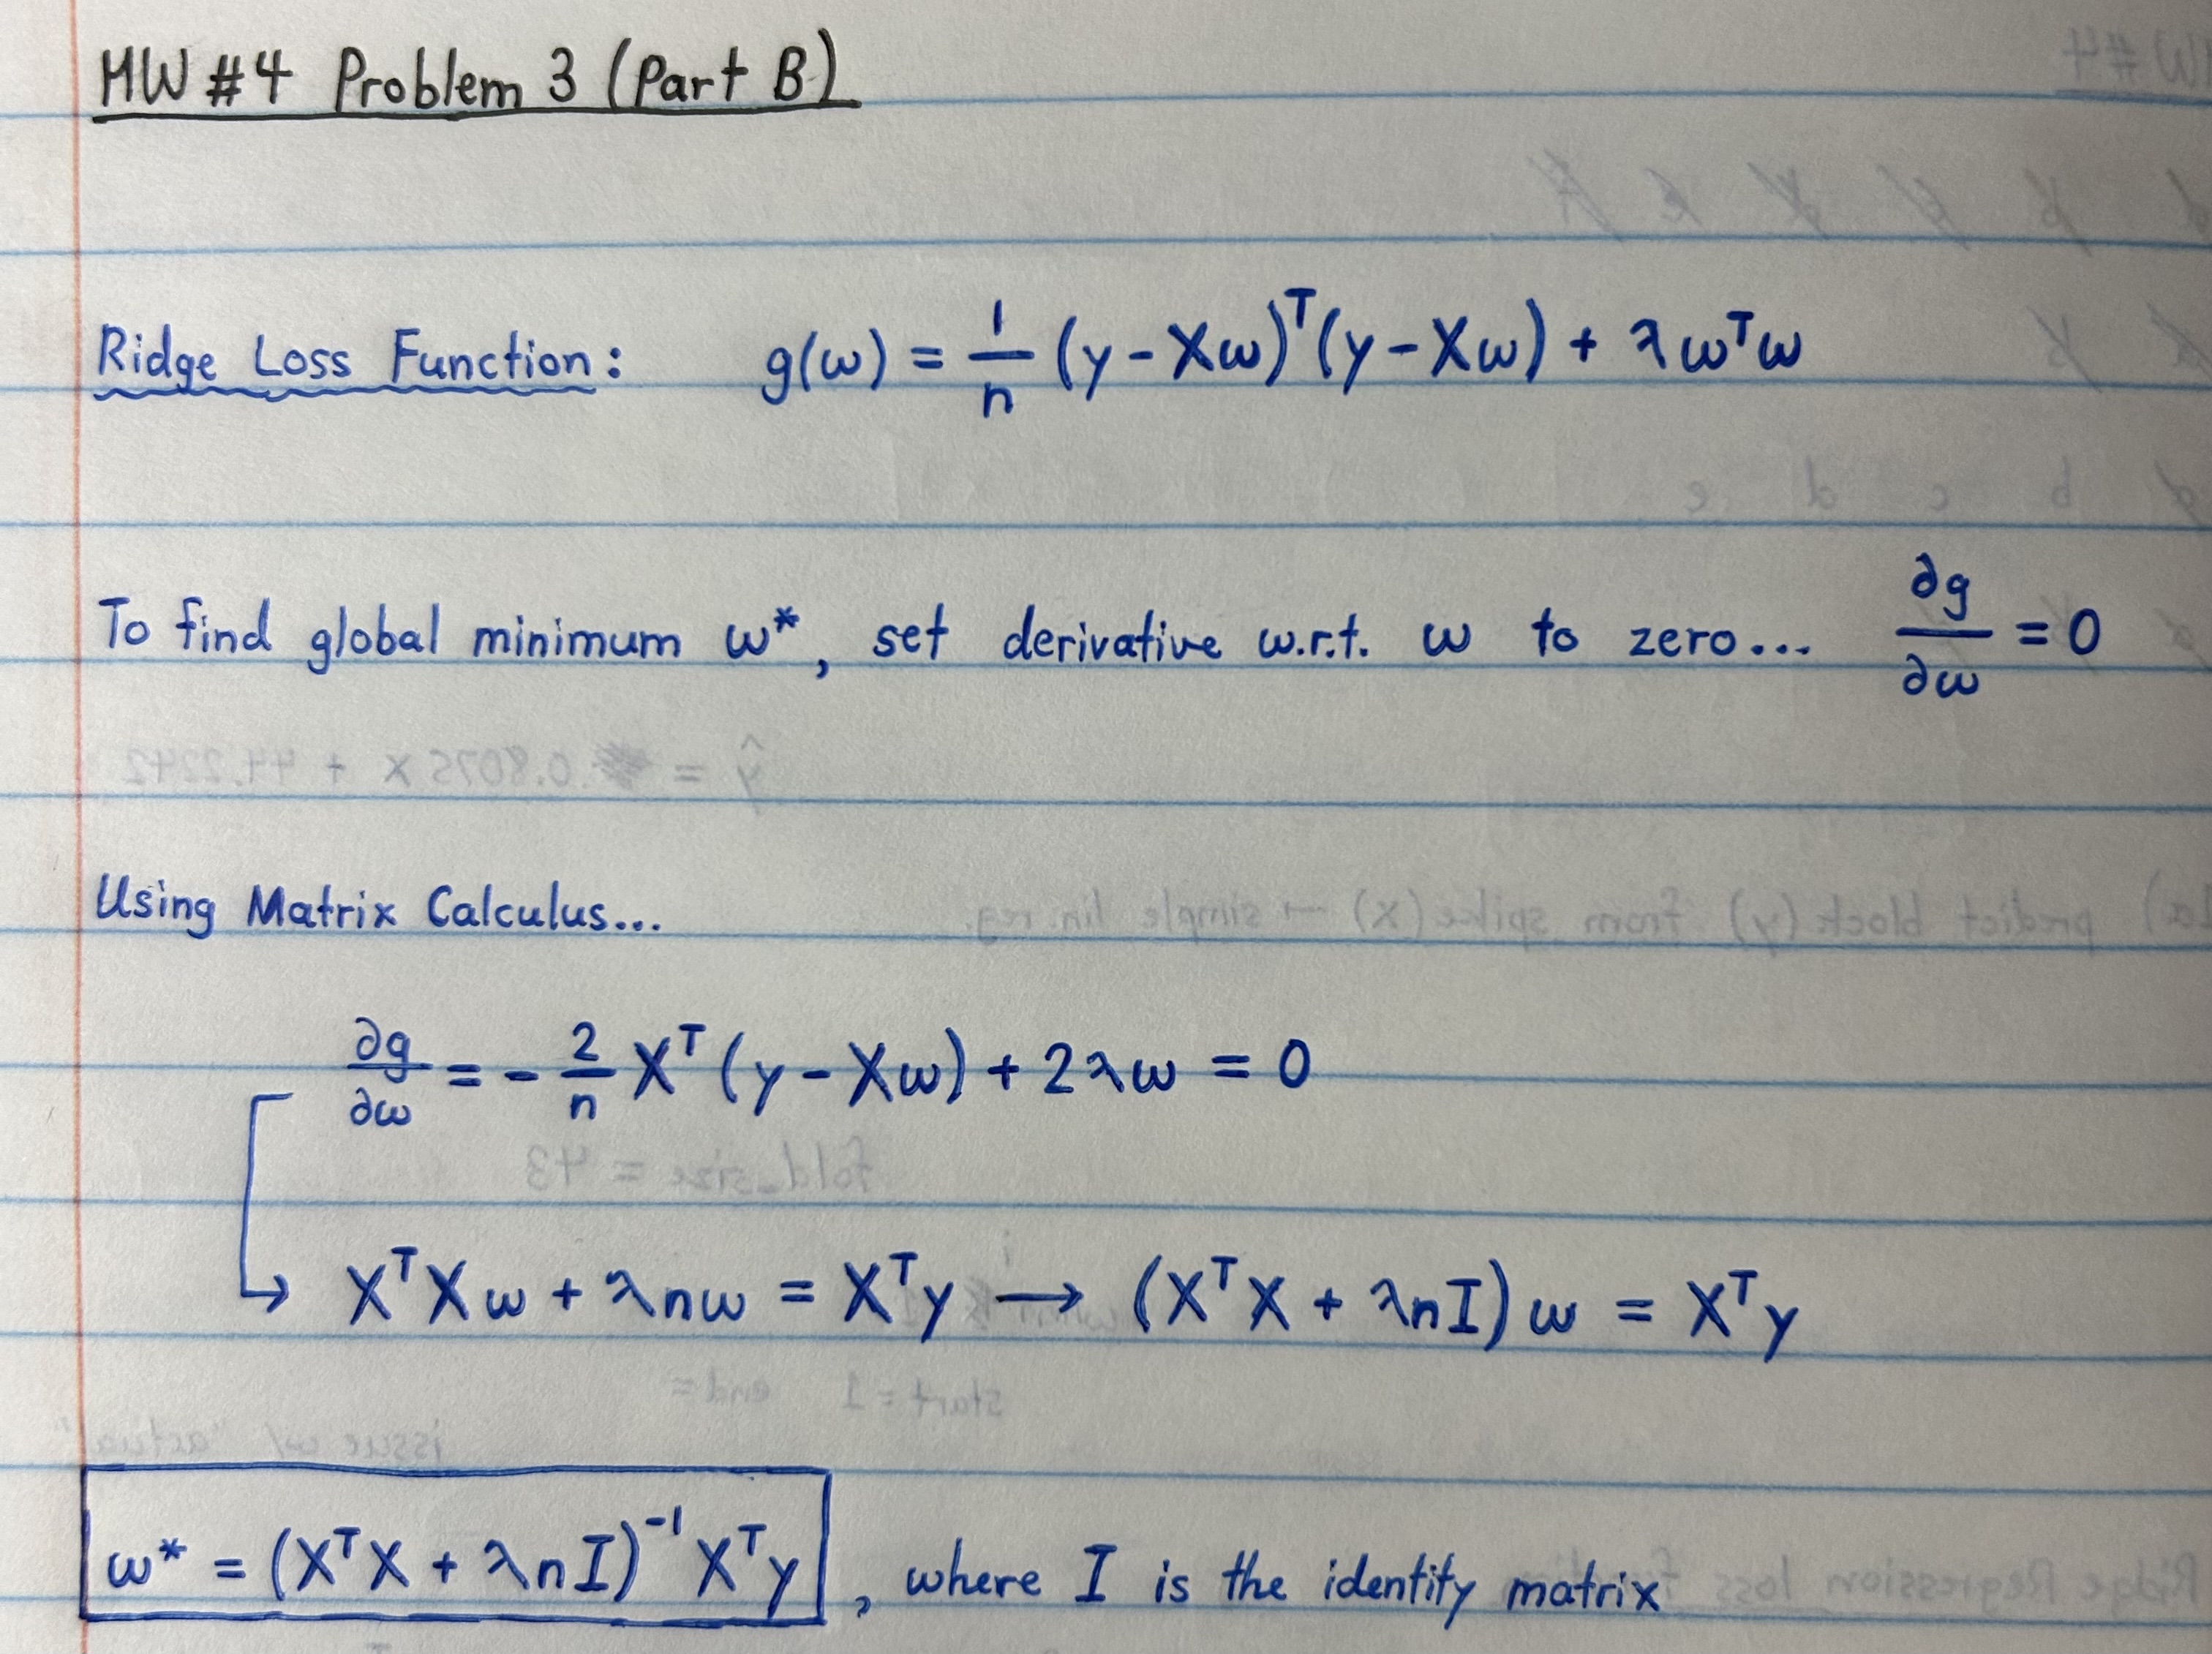 HW #4 Problem 3 (Part B)
Ridge Loss Function: g(ω) = 1/n (y - Xω)ᵀ(y - Xω) + λωᵀω
To find global minimum ω*, set derivative w.r.t. ω to zero... ∂g/∂ω = 0
Using Matrix Calculus...
∂g/∂ω = - 2/n Xᵀ(y - Xω) + 2λω = 0
↳ XᵀXω + λnω = Xᵀy → (XᵀX + λnI)ω = Xᵀy
ω* = (XᵀX + λnI)⁻¹Xᵀy, where I is the identity matrix